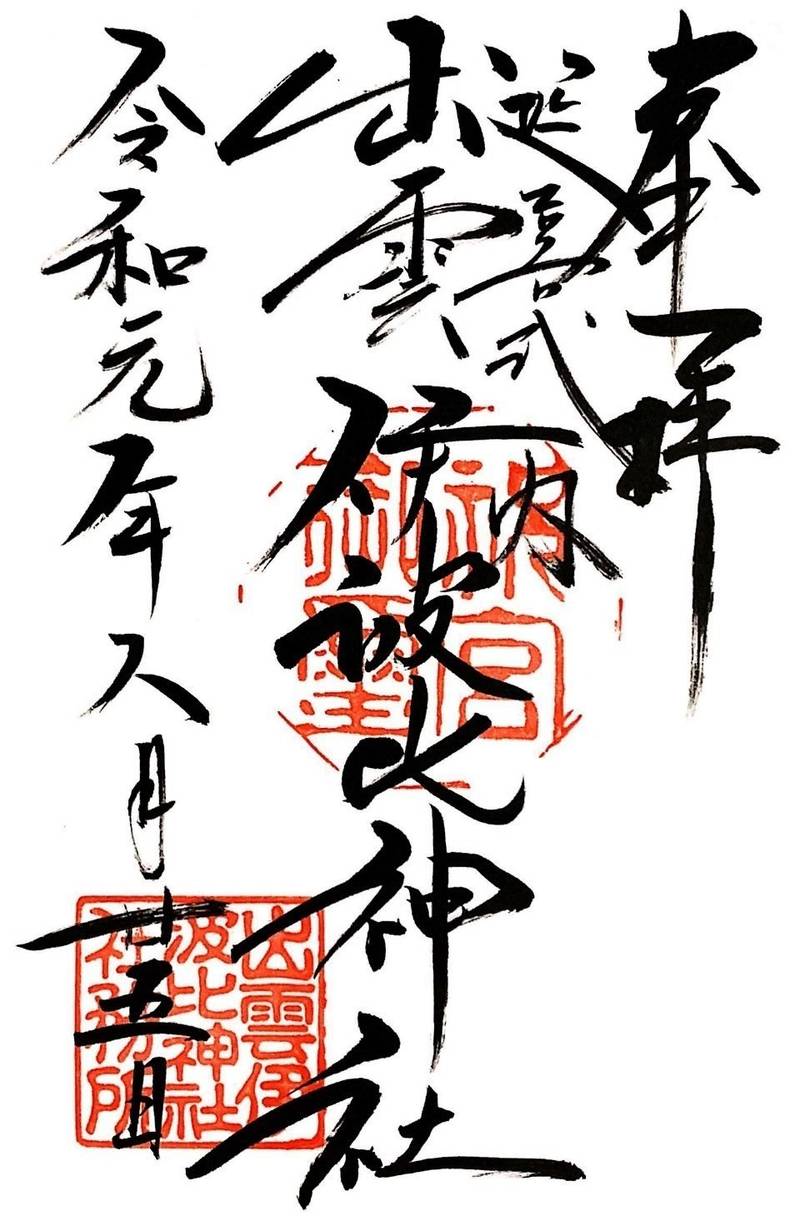 奉拝
延喜式内
出雲伊波比神社
令和元年八月廿五日
出雲伊
波比神社
社務所